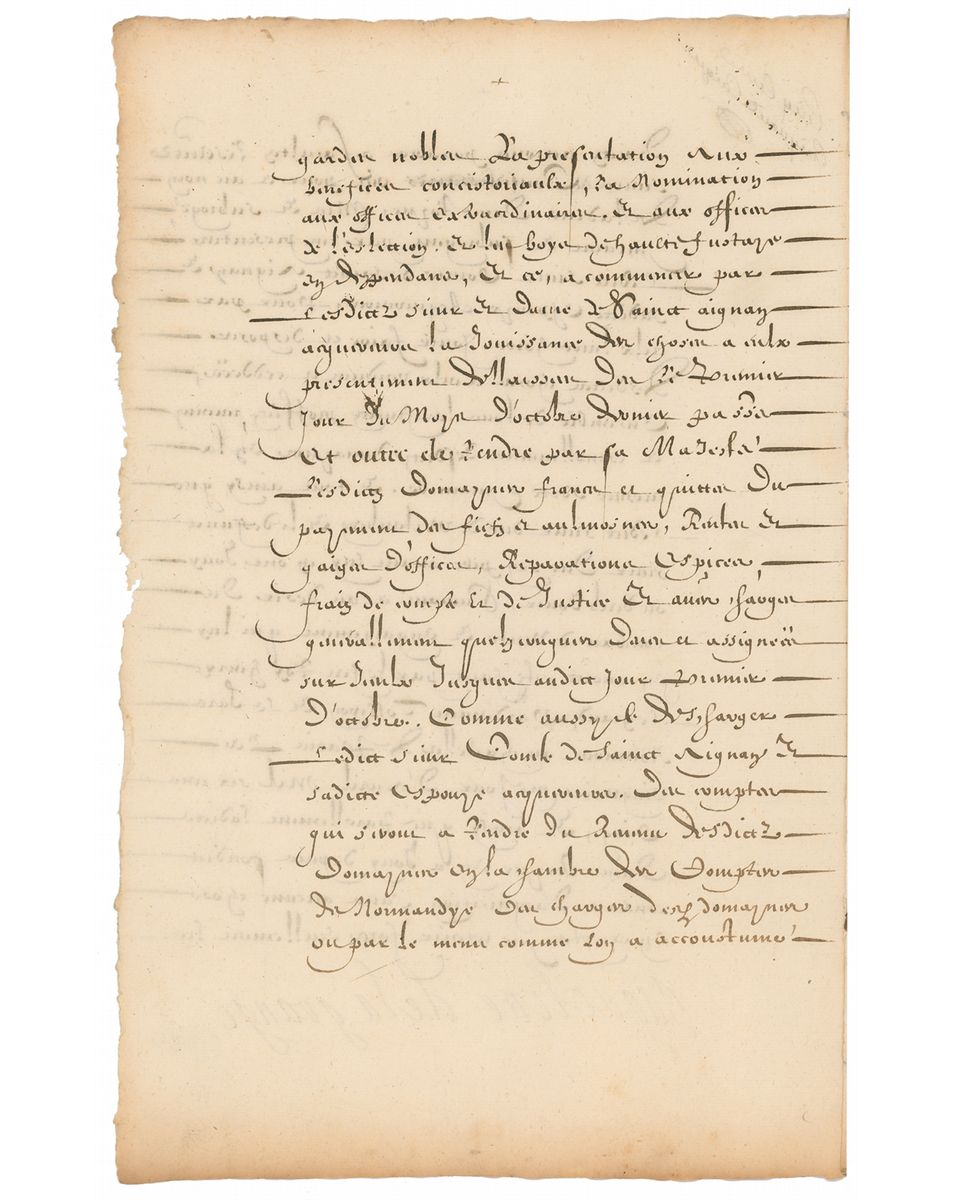 gardes nobles La presentation aux
benefices concistoriaulx, La Nomination
aux offices extraordinaires. Et aux offices
de l'eslection. et les boys de haulte fustaye
en deppendans, Et ce, a commencer par
Lesdictz sieur et Dame de Sainct aignan
acquereurs La Jouissance des choses a eulx
presentement dellaissees des Le Premier
Jour du Moys d'octobre dernier passé
Et outre de Rendre par sa Majesté
Lesdictz Domaynes francs et quittes du
payement des fiefz et aulmosnes, Rentes et
gaiges d'offices, Reparations Espices,
fraiz de compte Et de Justice Et autres charges
generallement quelzconques Deues et assignées
sur Iceulx Jusques audict Jour Premier
D'octobre. Comme aussy de descharger
Ledict sieur Comte de Sainct Aignan Et
sadicte Espouze acquereurs. Des comptes
qui seront a Rendre du Revenu desdictz
Domaynes en la chambre des Comptes
de Normandye des charges desd domaynes
ou par le menu comme Lon a accoustumé